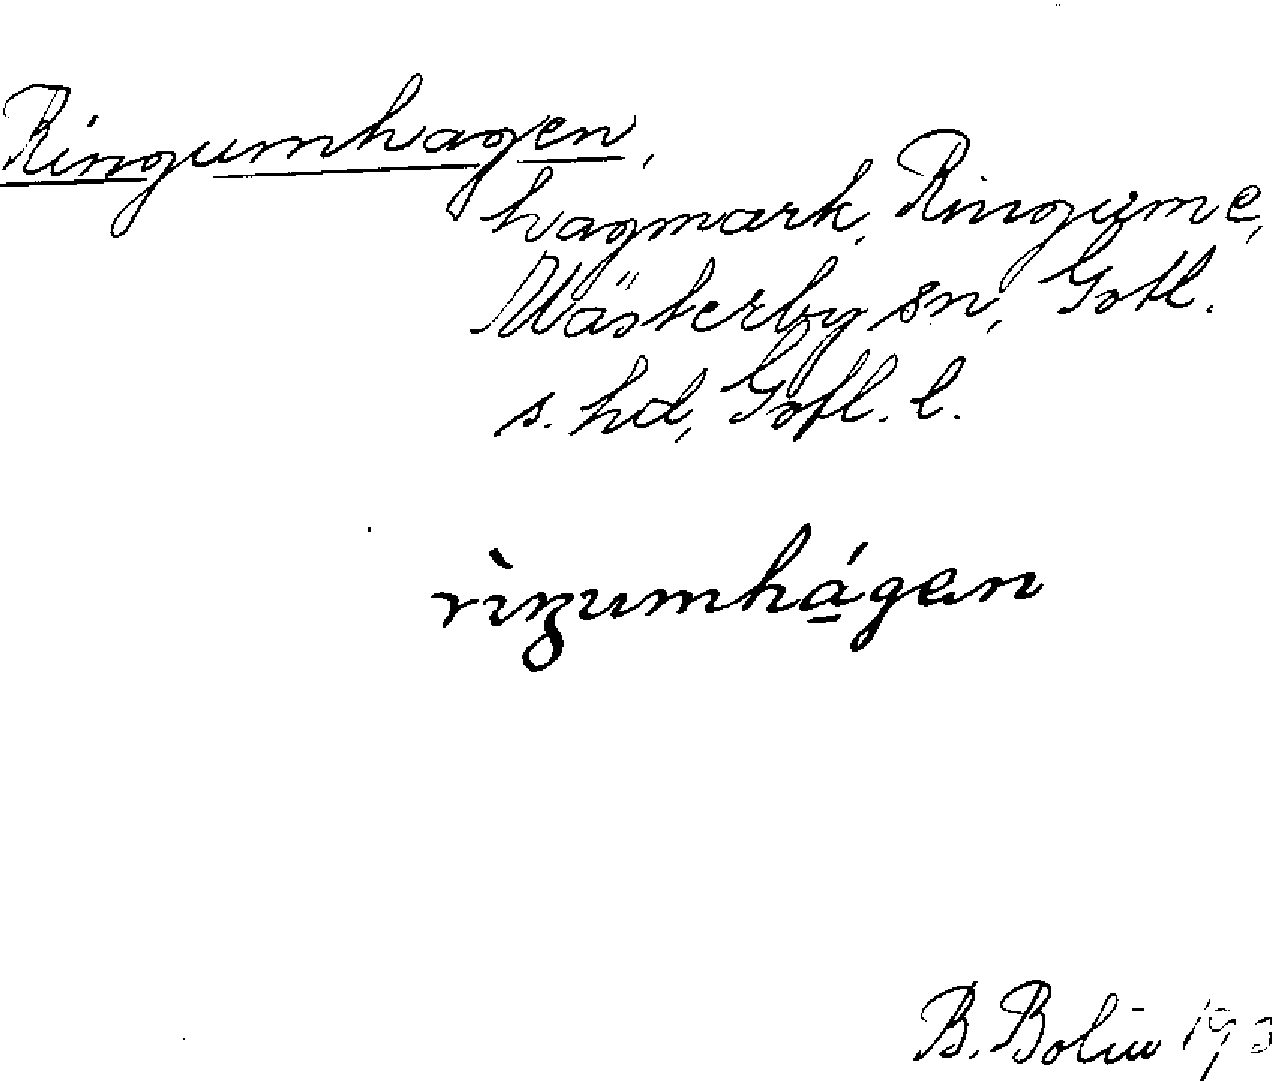 Ringumhagen,
hagmark, Ringume,
Wästerby sn, Gotl.
s. hd, Gotl. l.
rìŋumhágen
B. Bolin 193